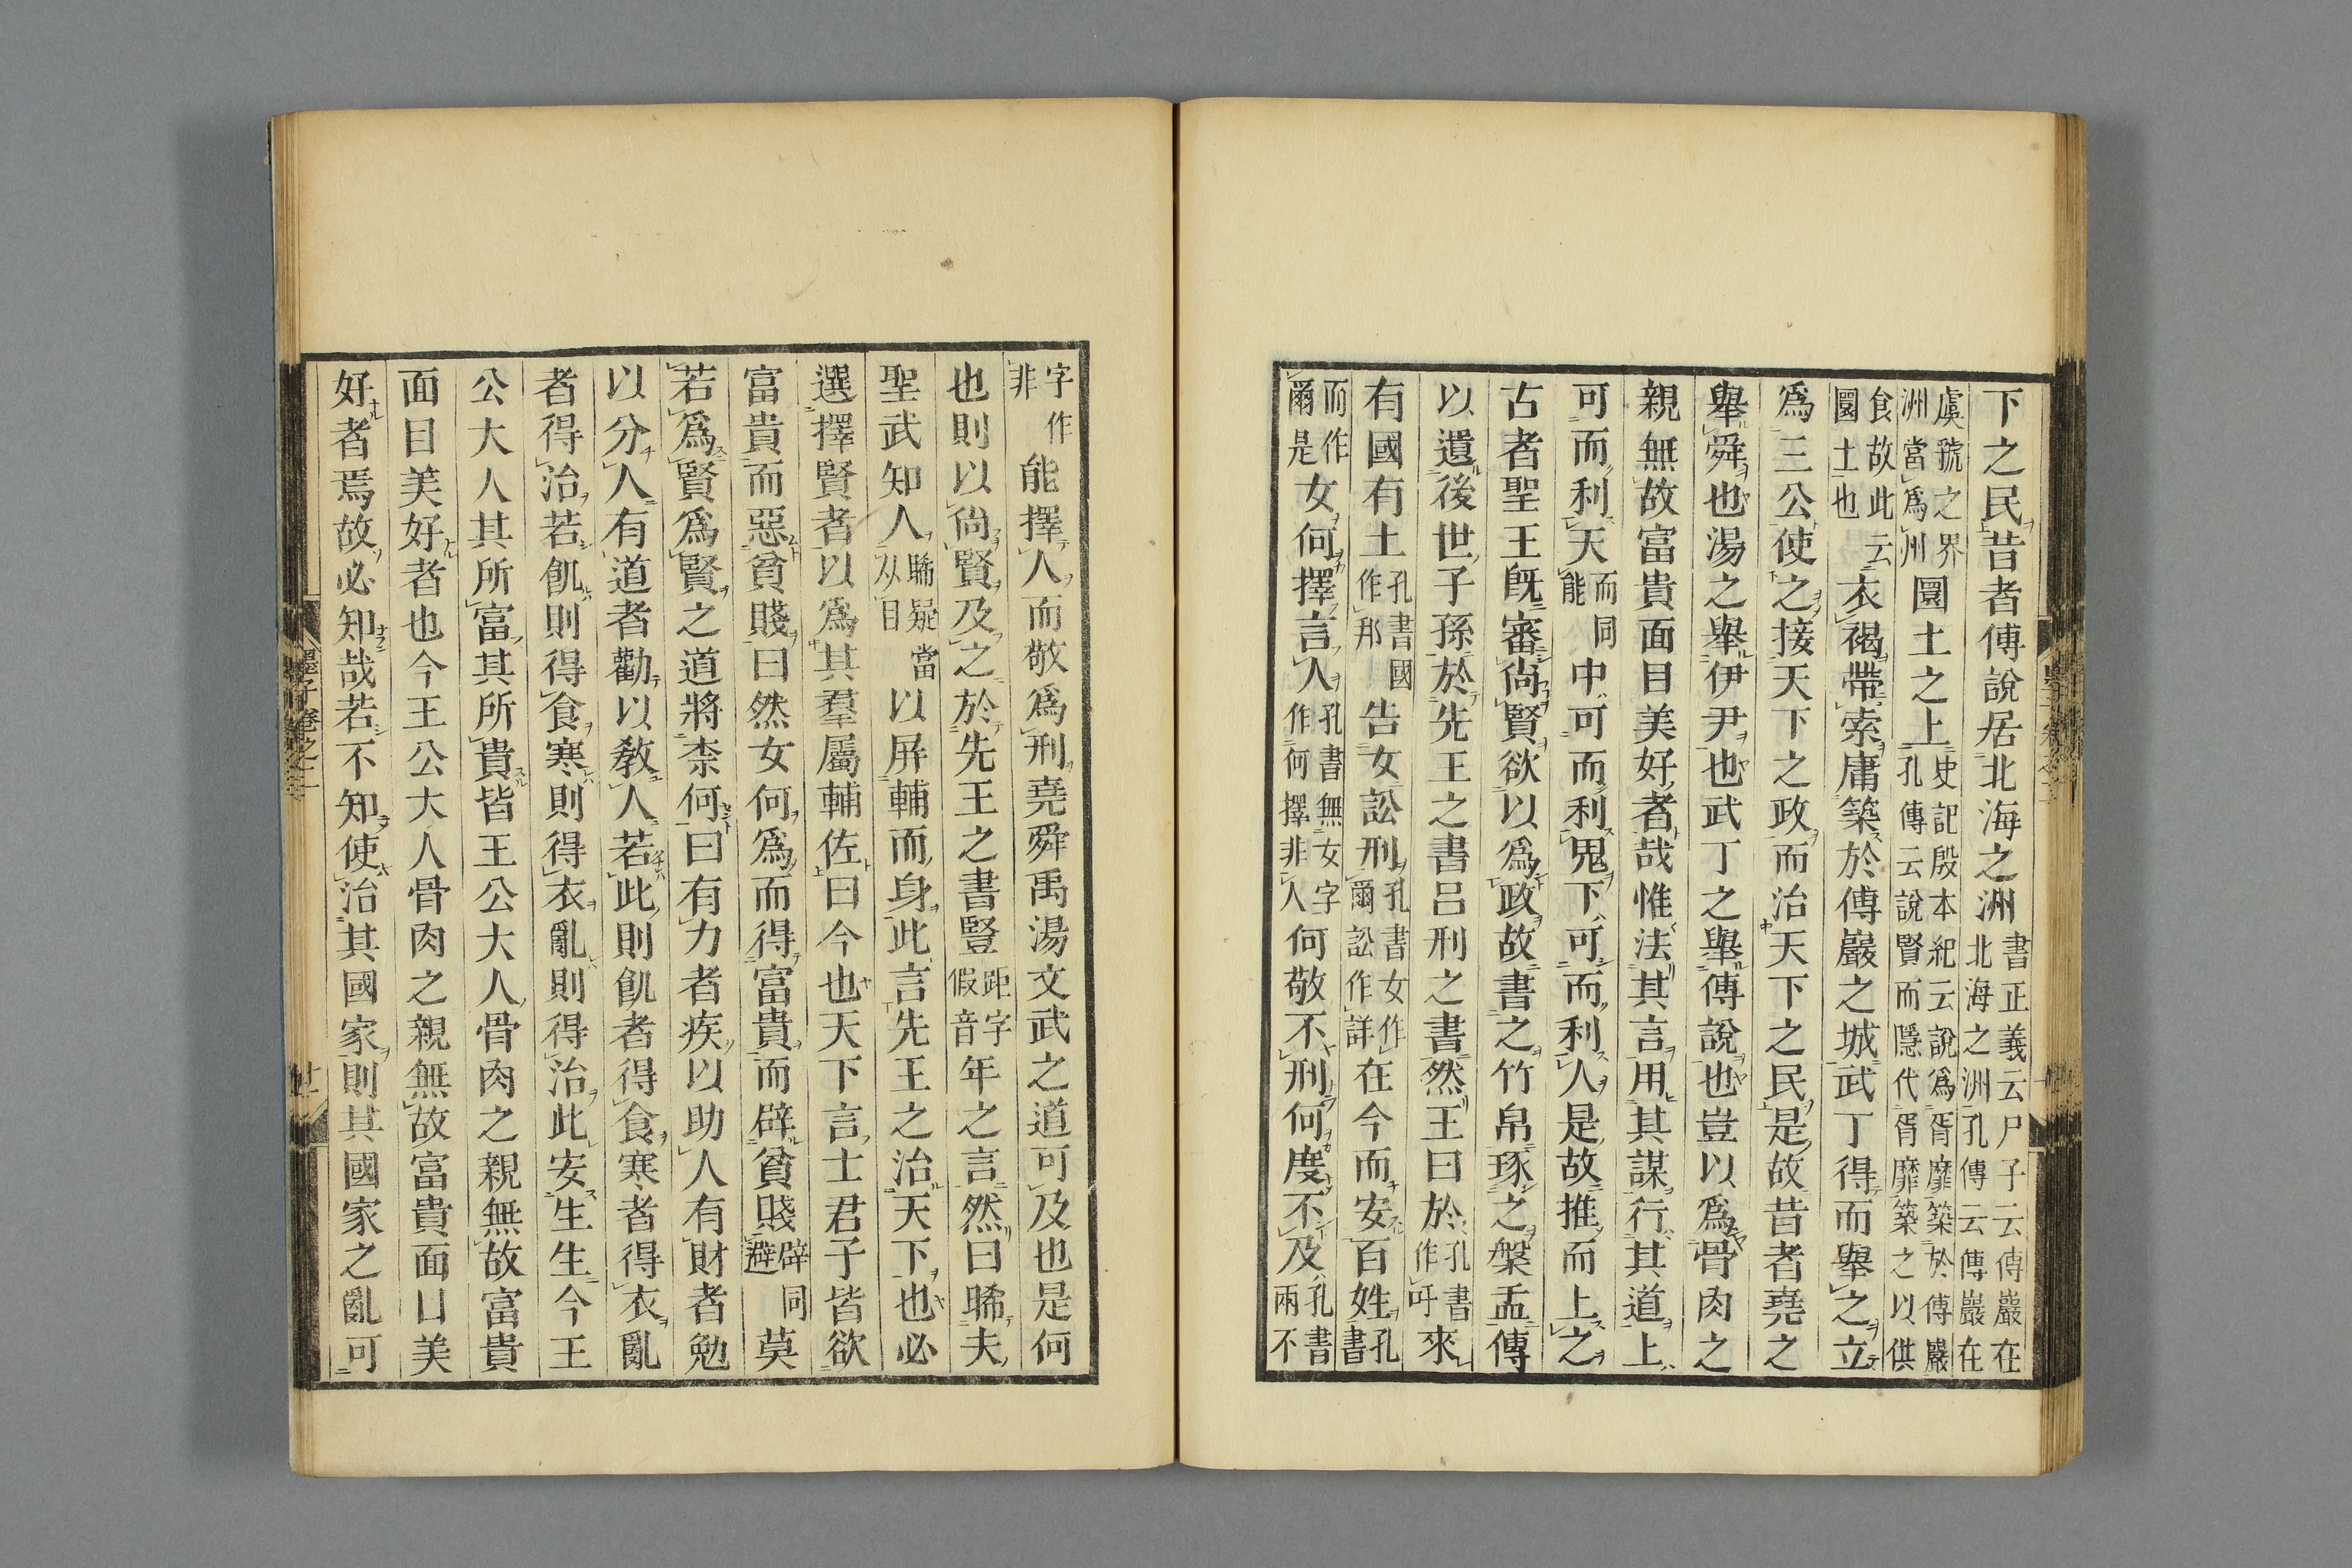 下之民昔者傅說居北海之洲書正義云尸子云傅巖在北海之洲孔傳云傅巖在
虞虢之界洲當爲州圜土之上史記殷本紀云說爲胥靡築於傅巖孔傳云說賢而隱代胥靡築之以供
食故此云圜土也衣褐帶索庸築於傅巖之城武丁得而舉之立
爲三公使之接天下之政而治天下之民是故昔者堯之
舉舜也湯之舉伊尹也武丁之舉傅說也豈以爲骨肉之
親無故富貴面目美好者哉惟法其言用其謀行其道上
可而利天而同能中可而利鬼下可而利人是故推而上之
古者聖王旣審尙賢欲以爲政故書之竹帛琢之槃盂傳
以遺後世子孫於先王之書呂刑之書然王曰於孔書作吁來
有國有土孔書國作邦告女訟刑孔書女作爾訟作詳在今而安百姓孔書
而作爾是女何擇言人孔書無女字作何擇非人何敬不刑何度不及孔書兩不
字作非能擇人而敬爲刑堯舜禹湯文武之道可及也是何
也則以尙賢及之於先王之書豎距字假音年之言然曰晞夫
聖武知人晞疑當从目以屏輔而身此言先王之治天下也必
選擇賢者以爲其羣屬輔佐曰今也天下言士君子皆欲
富貴而惡貧賤曰然女何爲而得富貴而辟貧賤辟同避莫
若爲賢爲賢之道將柰何曰有力者疾以助人有財者勉
以分人有道者勸以敎人若此則飢者得食寒者得衣亂
者得治若飢則得食寒則得衣亂則得治此安生生今王
公大人其所富其所貴皆王公大人骨肉之親無故富貴
面目美好者也今王公大人骨肉之親無故富貴面目美
好者焉故必知哉若不知使治其國家則其國家之亂可
墨子卷之二